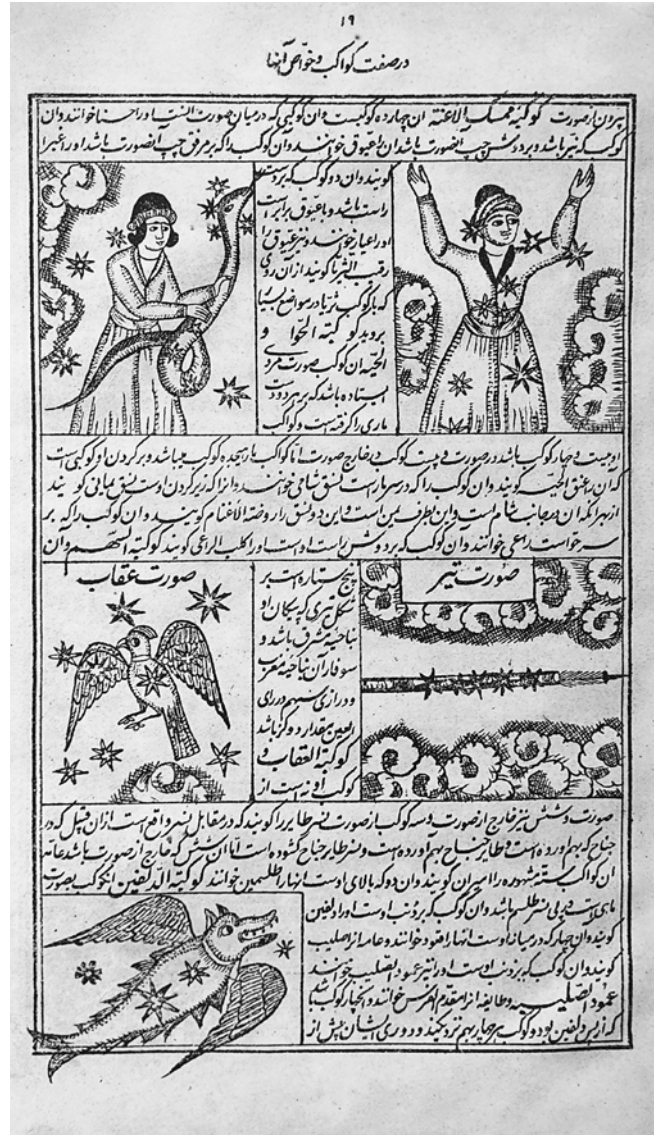 ١٩
در صفت کواکب و خواص آنها
بیرون از صورت کوکبة ممسک الاعنة آن چهارده کوکبست وان کوکبی که در میان صورت
کوکب که نیر باشد و بر دوش چپ آنصورت باشد آن را عیوق خوانند وان کوکب را که بر مرفق چپ آنصورت باشد او را عنز
کویند وان دو کوکب که بر دست
راست باشد و با عیوق برابر است
او را عیار خوانند و نیز عیوق را
رقیب الثریا کویند از آن روی
که با کوکب ثریا در مواضع بسیار
بر دید کوکبة الحوا و
الحیه ان کوکب صورت مردی
ایستاده باشد که بر هر دو دست
ماری را کرفته است و کوکب
او بیست و چهار کوکب باشد در صورت و کوکب در خارج صورت اما کواکب مار هیجده کوکب میباشد و بر کردن او کوکبی است
که ان را عنق الحیه کویند وان کوکب را که در سر مار است نسق شامی خوانند و انرا که زیر کردن اوست نسق یمانی کویند
از بهر انکه ان در جانب شام است و این بطرف یمن است و این دو نسق را روضة الاغنام کویند وان کوکب را که بر
سر حواست راعی خوانند وان کوکب که بر دوش راست اوست او را کلب الراعی کویند کوکبة السهم وان
صورت تیر
پنج ستاره است بر
شکل تیری که پیکان او
بناحیه مشرق باشد و
سوفار ان بناحیه مغرب
و درازی سهم در رای
العین مقدار دو کز باشد
کوکبة العقاب و
کوکب او نه است از
صورت عقاب
صورت و شش نیز خارج از صورت و سه کوکب از صورت نسر طایر را کویند که در مقابل نسر واقع است از ان قبل که در
جناح که بهم آورده است و طایر جناح بهم آورده است و نسر طایر جناح کشوده است اما ان شش که خارج از صورت باشد عامه
ان کواکب سته مشهوره را میزان کویند وان دو که بالای اوست انها را ظلیمین خوانند کوکبة الدلفین انکوکب بصورت
باشد وان کوکب که بر ذنب اوست او را دلفین
کویند وان چهار که در میانه اوست انها را عقود خوانند و عامه انرا صلیب
کویند وان کوکب که بر ذنب اوست او را نیز عمود الصلیب خوانند
عمود الصلیب و طایفه انرا مقدم الفرس خوانند و چهار کوکب باشد
که از پس دلفین بود و کوکب هر چهار بهم نزدیکند و دوری ایشان بیش از